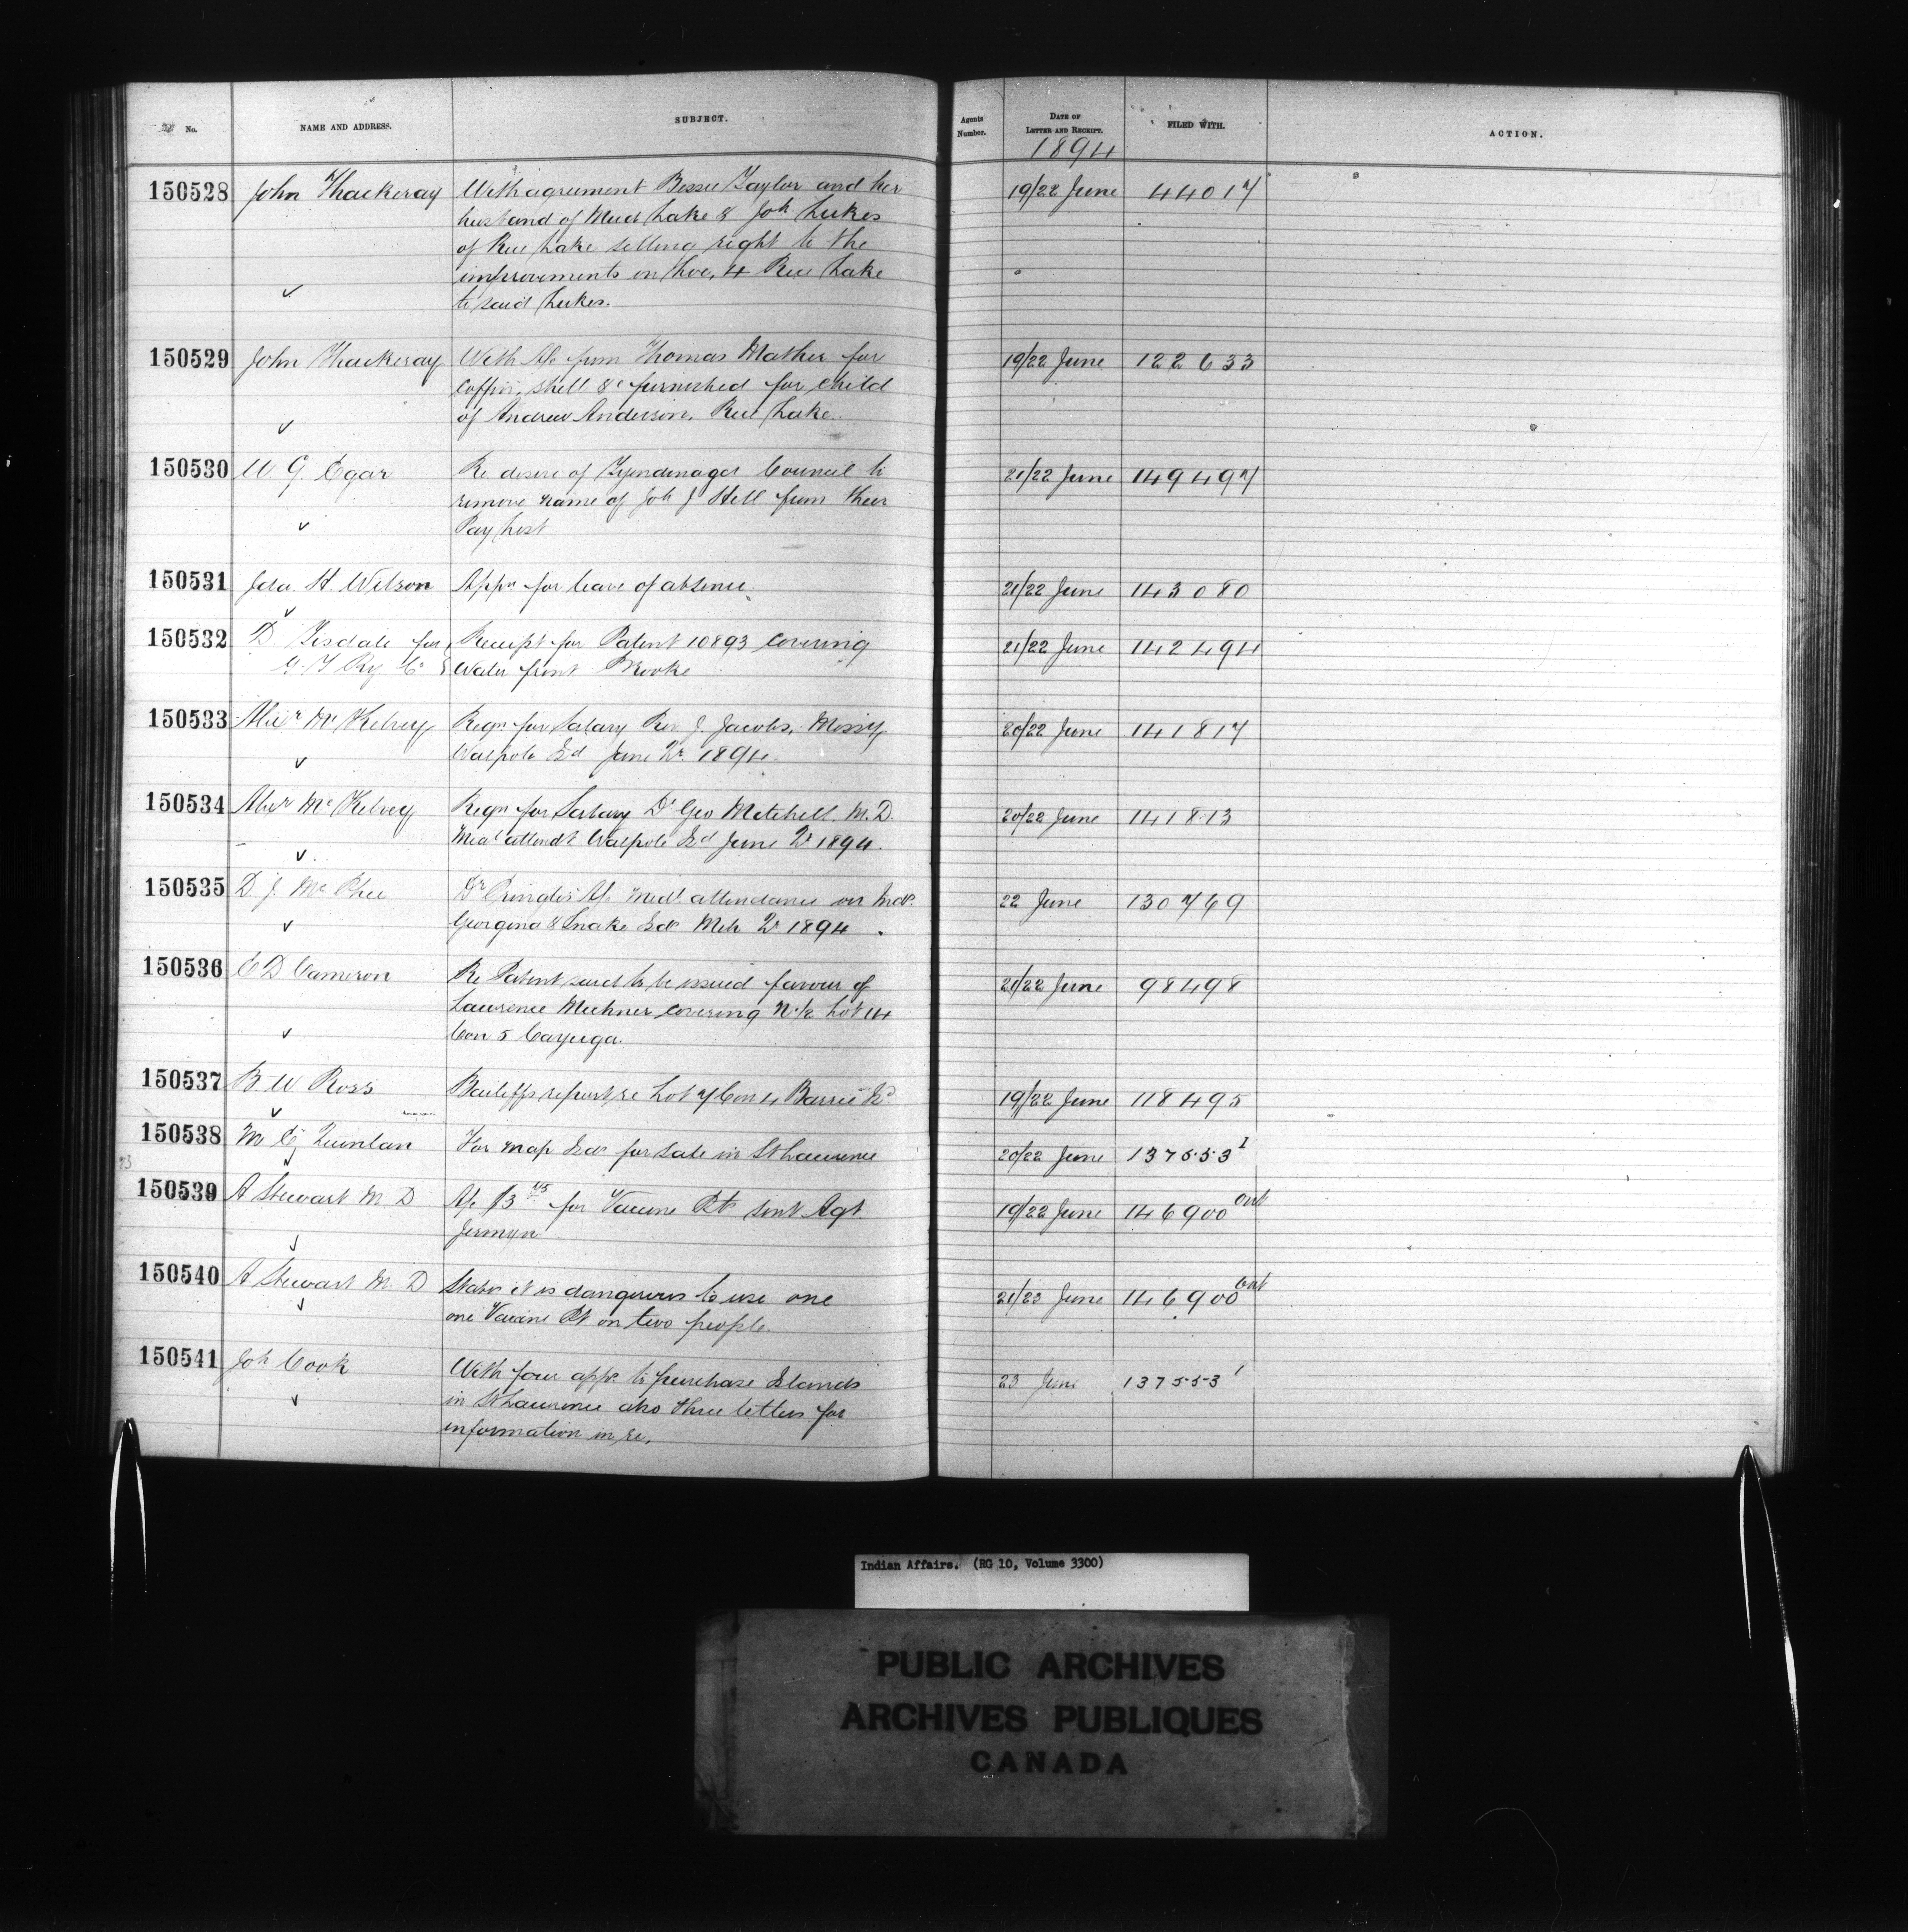 No. NAME AND ADDRESS. SUBJECT. Agents Number. DATE OF LETTER AND RECEIPT. FILED WITH. ACTION.
1894
150528 John Thackeray With agreement Bessie Taylor and her 19/22 June 44017
husband of Mud Lake & Joh Lukes
of Rice Lake selling right to the
improvements on Loc. 4 Rice Lake
to said Lukes.
150529 John Thackeray With A/c from Thomas Mather for 19/22 June 122633
Coffin, shell &c furnished for child
of Andrew Anderson, Rice Lake.
150530 W G. Egar Re desire of Tyendinaga Council to 21/22 June 149497
remove name of Joh J Hill from their
Pay List
150531 Ida. H. Wilson Appn for leave of absence. 21/22 June 143080
150532 D Tisdale for Receipt for Patent 10893 covering 21/22 June 142494
G. T Ry Co Water front Brooke
150533 Alexr McKelvey Reqn for Salary Rev J. Jacobs, Missy 20/22 June 141817
Walpole Id June Qr 1894.
150534 Alexr McKelvey Reqn for Salary Dr Geo Mitchell. M.D. 20/22 June 141813
Medl attendt Walpole Id June Qr 1894.
150535 D. J. McPhee Dr Pringles A/c Medl attendance on Inds. 22 June 130769
Georgina & Snake Ids Mch Qr 1894.
150536 E D Cameron Re Patent said to be issued favour of 21/22 June 98498
Lawrence Mechner covering N 1/2 Lot 14
Con 5 Cayuga.
150537 B. W Ross Bailiffs report re Lot 7 Con 4 Barrie Id 19/22 June 118495
150538 M Quinlan For map Ids for sale in St Lawrence 20/22 June 137553 1
150539 A Stewart M. D A/c $3 for Vaccine Pts sent Agt. 19/22 June 146900
Jermyn.
150540 A Stewart M. D States it is dangerous to use one 21/23 June 146900
one Vaccine Pt on two people.
150541 Joh Cook With four appns to purchase Islands 23 June 137553 1
in St Lawrence also three letters for
information in re.
Indian Affairs. (RG 10, Volume 3300)
PUBLIC ARCHIVES
ARCHIVES PUBLIQUES
CANADA